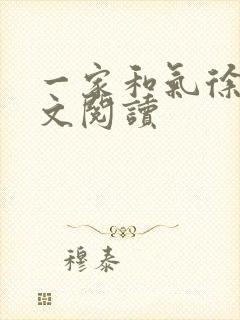 一家和氣徐
文閱讀
穆泰